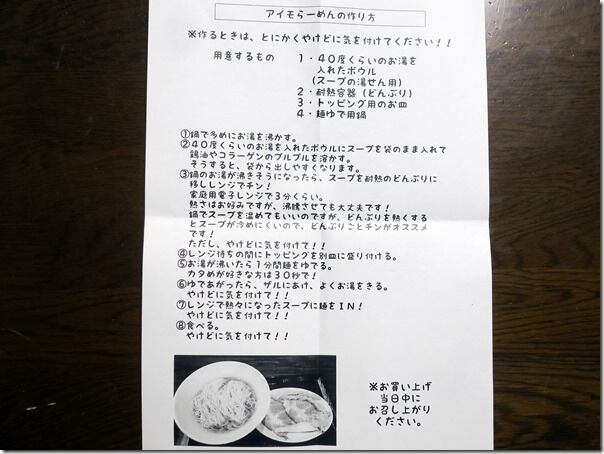 アイモらーめんの作り方
※作るときは、とにかくやけどに気を付けてください!!
用意するもの　1・40度くらいのお湯を
入れたボウル
(スープの湯せん用)
2・耐熱容器(どんぶり)
3・トッピング用のお皿
4・麺ゆで用鍋
①鍋で多めにお湯を沸かす。
②40度くらいのお湯を入れたボウルにスープを袋のまま入れて
鶏油やコラーゲンのプルプルを溶かす。
そうすると、袋から出しやすくなります。
③鍋のお湯が沸きそうになったら、スープを耐熱のどんぶりに
移しレンジでチン!
家庭用電子レンジで3分くらい。
熱さはお好みですが、沸騰させても大丈夫です!
鍋でスープを温めてもいいのですが、どんぶりを熱くする
とスープが冷めにくいので、どんぶりごとチンがオススメ
です!
ただし、やけどに気を付けて!!
④レンジ待ちの間にトッピングを別皿に盛り付ける。
⑤お湯が沸いたら1分間麺をゆでる。
カタめが好きな方は30秒で!
⑥ゆであがったら、ザルにあけ、よくお湯をきる。
やけどに気を付けて!!
⑦レンジで熱々になったスープに麺をIN!
やけどに気を付けて!!
⑧食べる。
やけどに気を付けて!!
※お買い上げ
当日中に
お召し上がり
ください。